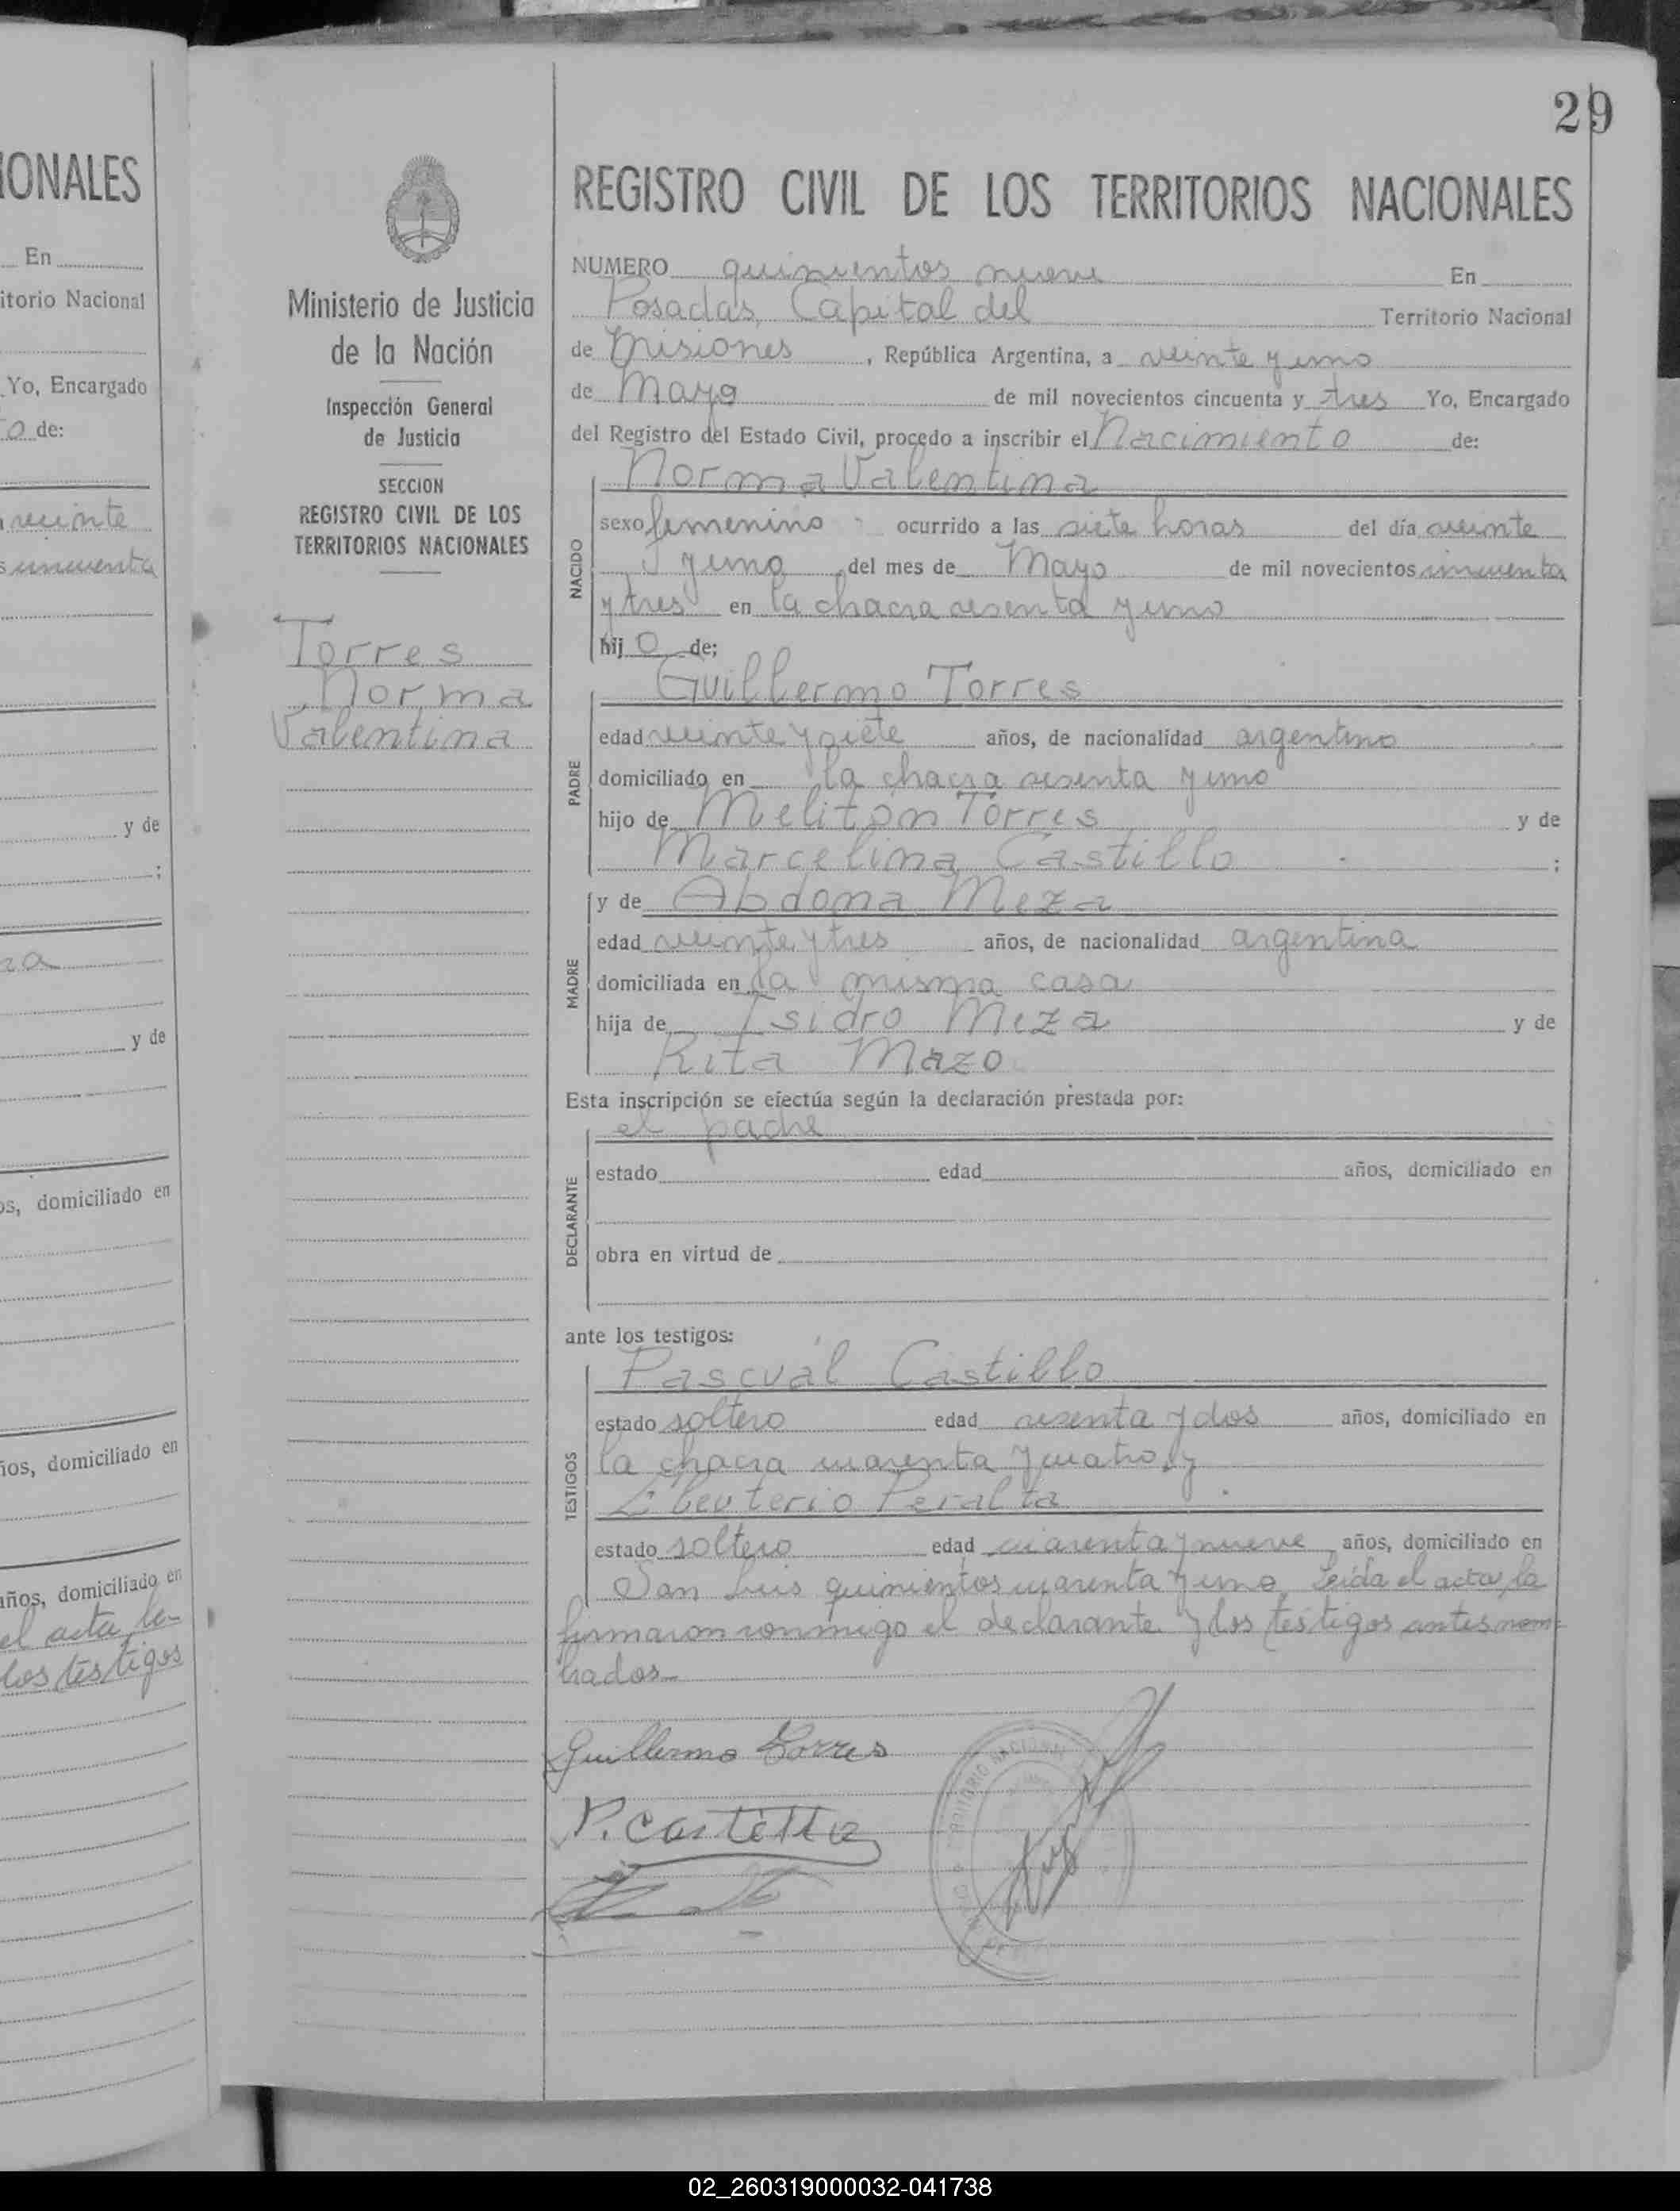 29
IONALES
En
itorio Nacional
Yo, Encargado
o de:
veinte
s cincuenta
y de
;
na
y de
os, domiciliado en
ños, domiciliado en
años, domiciliado en
el acta, la
los testigos
Ministerio de Justicia
de la Nación
Inspección General
de Justicia
SECCION
REGISTRO CIVIL DE LOS
TERRITORIOS NACIONALES
Torres
Norma
Valentina
REGISTRO CIVIL DE LOS TERRITORIOS NACIONALES
NUMERO quinientos nueve En
Posadas, Capital del Territorio Nacional
de Misiones, República Argentina, a veinte y uno
de Mayo de mil novecientos cincuenta y tres Yo, Encargado
del Registro del Estado Civil, procedo a inscribir el Nacimiento de:
Norma Valentina
NACIDO
sexo femenino ocurrido a las siete horas del día veinte
y uno del mes de Mayo de mil novecientos cincuenta
y tres en la chacra sesenta y uno
hij o de:
Guillermo Torres
PADRE
edad veinte y siete años, de nacionalidad argentino
domiciliado en la chacra sesenta y uno
hijo de Melitón Torres y de
Marcelina Castillo ;
y de Abdona Meza
MADRE
edad veinte y tres años, de nacionalidad argentina
domiciliada en la misma casa
hija de Isidro Meza y de
Rita Mazo
Esta inscripción se efectúa según la declaración prestada por:
el padre
DECLARANTE
estado edad años, domiciliado en
obra en virtud de
ante los testigos:
Pascual Castillo
TESTIGOS
estado soltero edad sesenta y dos años, domiciliado en
la chacra cuarenta y cuatro, y
Eleuterio Peralta
estado soltero edad cuarenta y nueve años, domiciliado en
San Luis quinientos cuarenta y uno. Leida el acta, la
firmaron conmigo el declarante y los testigos antes nom=
brados.—
Guillermo Torres
P. Castillo
TERRITORIO NACIONAL
02_260319000032-041738